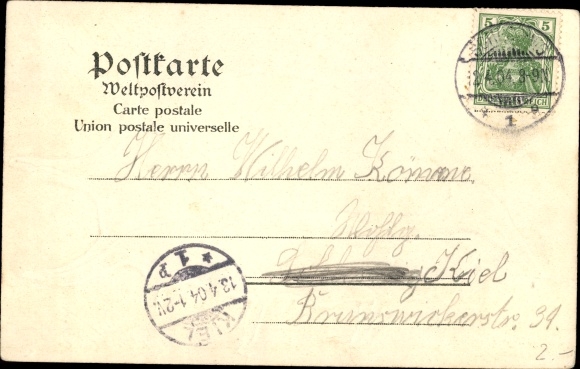 Postkarte
Weltpostverein
Carte postale
Union postale universelle
5 5
04. 9-9
1 g
Herrn Wilhelm
Wohlg.
Kiel
Brunswickerstr. 34.
2.-
KIEL
13.4.04.1-2V.
* 1 P *